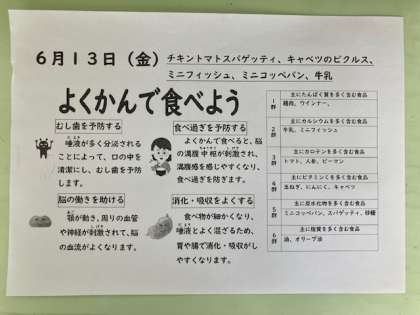 6月13日（金）
チキントマトスパゲッティ、キャベツのピクルス、
ミニフィッシュ、ミニコッペパン、牛乳
よくかんで食べよう
むし歯を予防する
唾液が多く分泌される
ことによって、口の中を
清潔にし、むし歯を予防
します。
食べ過ぎを予防する
よくかんで食べると、脳
の満腹中枢が刺激され、
満腹感を感じやすくなり、
食べ過ぎを防ぎます。
脳の働きを助ける
顎が動き、周りの血管
や神経が刺激されて、脳
の血流がよくなります。
消化・吸収をよくする
食べ物が細かくなり、
唾液とよく混ざるため、
胃や腸で消化・吸収がし
やすくなります。
1群
主にたんぱく質を多く含む食品
鶏肉、ウインナー、
2群
主にカルシウムを多く含む食品
牛乳、ミニフィッシュ
3群
主にカロテンを多く含む食品
トマト、人参、ピーマン
4群
主にビタミンCを多く含む食品
玉ねぎ、にんにく、キャベツ
5群
主に炭水化物を多く含む食品
ミニコッペパン、スパゲッティ、砂糖
6群
主に脂質を多く含む食品
油、オリーブ油